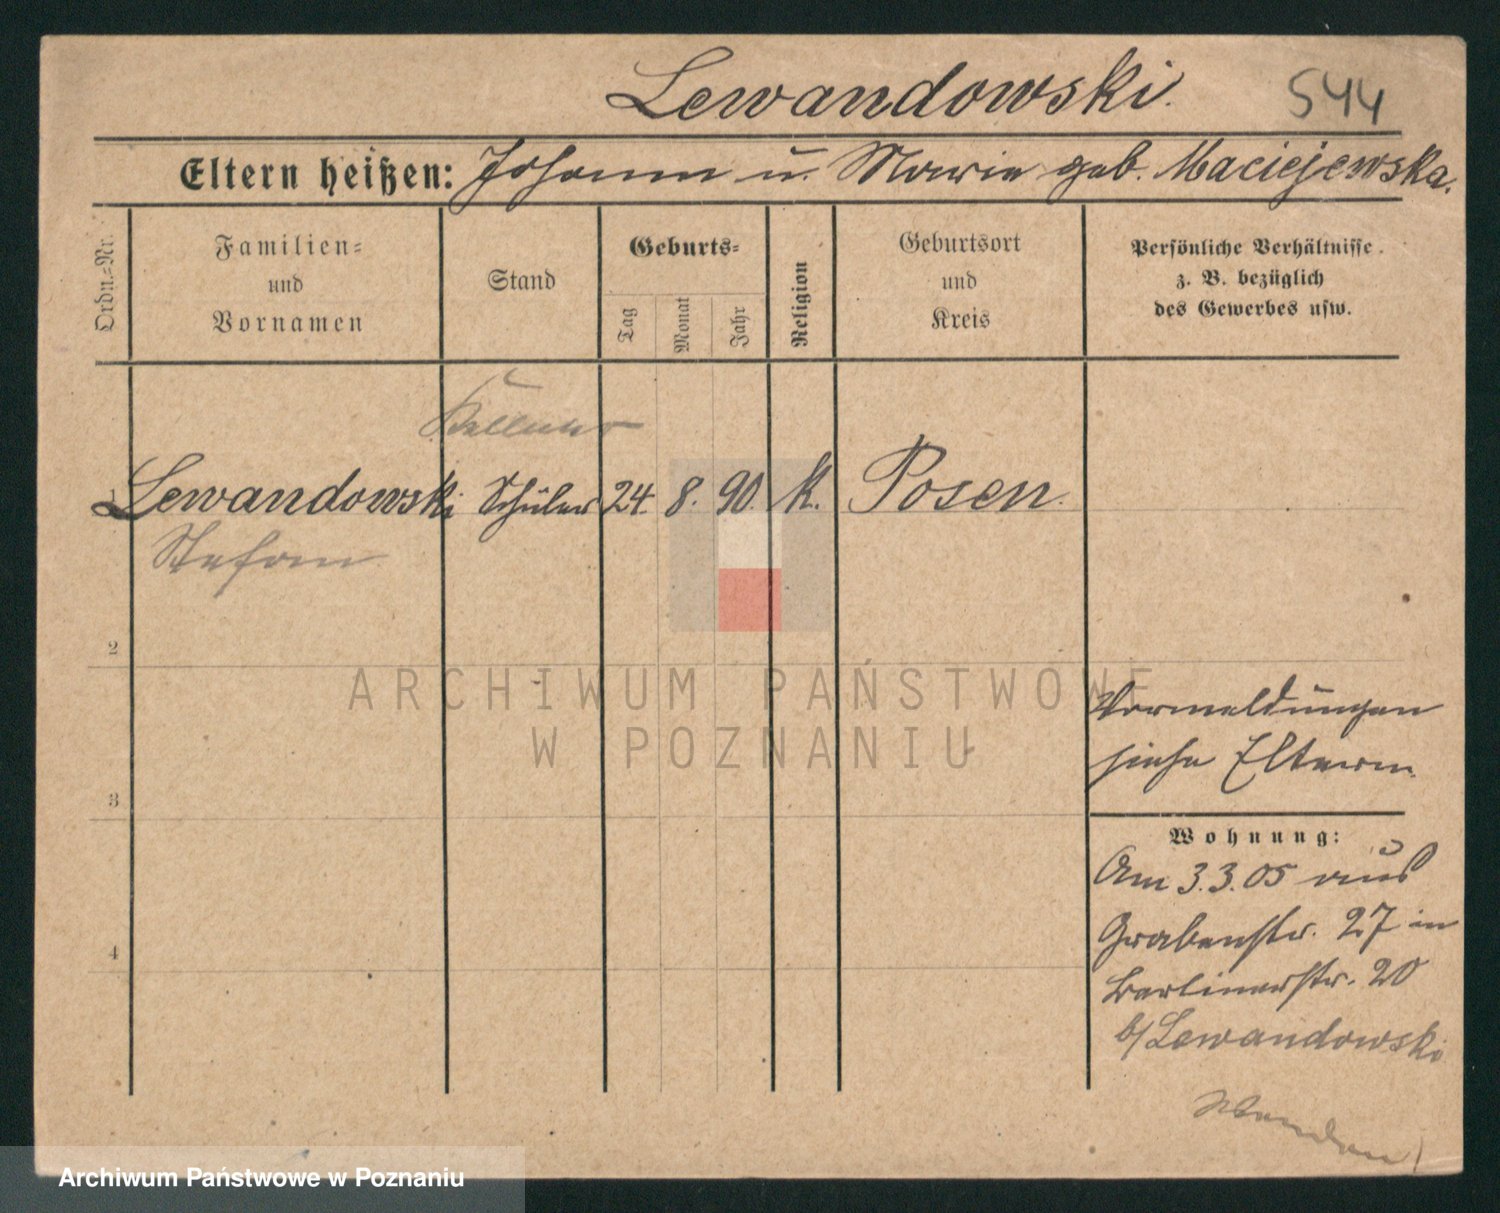 Lewandowski.
544
Eltern heißen: Johann u. Marie geb. Maciejewska.
Ordn.=Nr.
Familien=
und
Vornamen
Stand
Geburts=
Tag
Monat
Jahr
Religion
Geburtsort
und
Kreis
Persönliche Verhältnisse
z. B. bezüglich
des Gewerbes usw.
Kellner
1 Lewandowski Schüler 24. 8. 90. k. Posen.
Stefan
2
3
4
Vormeldungen
siehe Eltern.
Wohnung:
Am 3.3.05 aus
Grabenstr. 27 in
Berlinerstr. 20
b/Lewandowski
Wenden!
ARCHIWUM PAŃSTWOWE
W POZNANIU
Archiwum Państwowe w Poznaniu